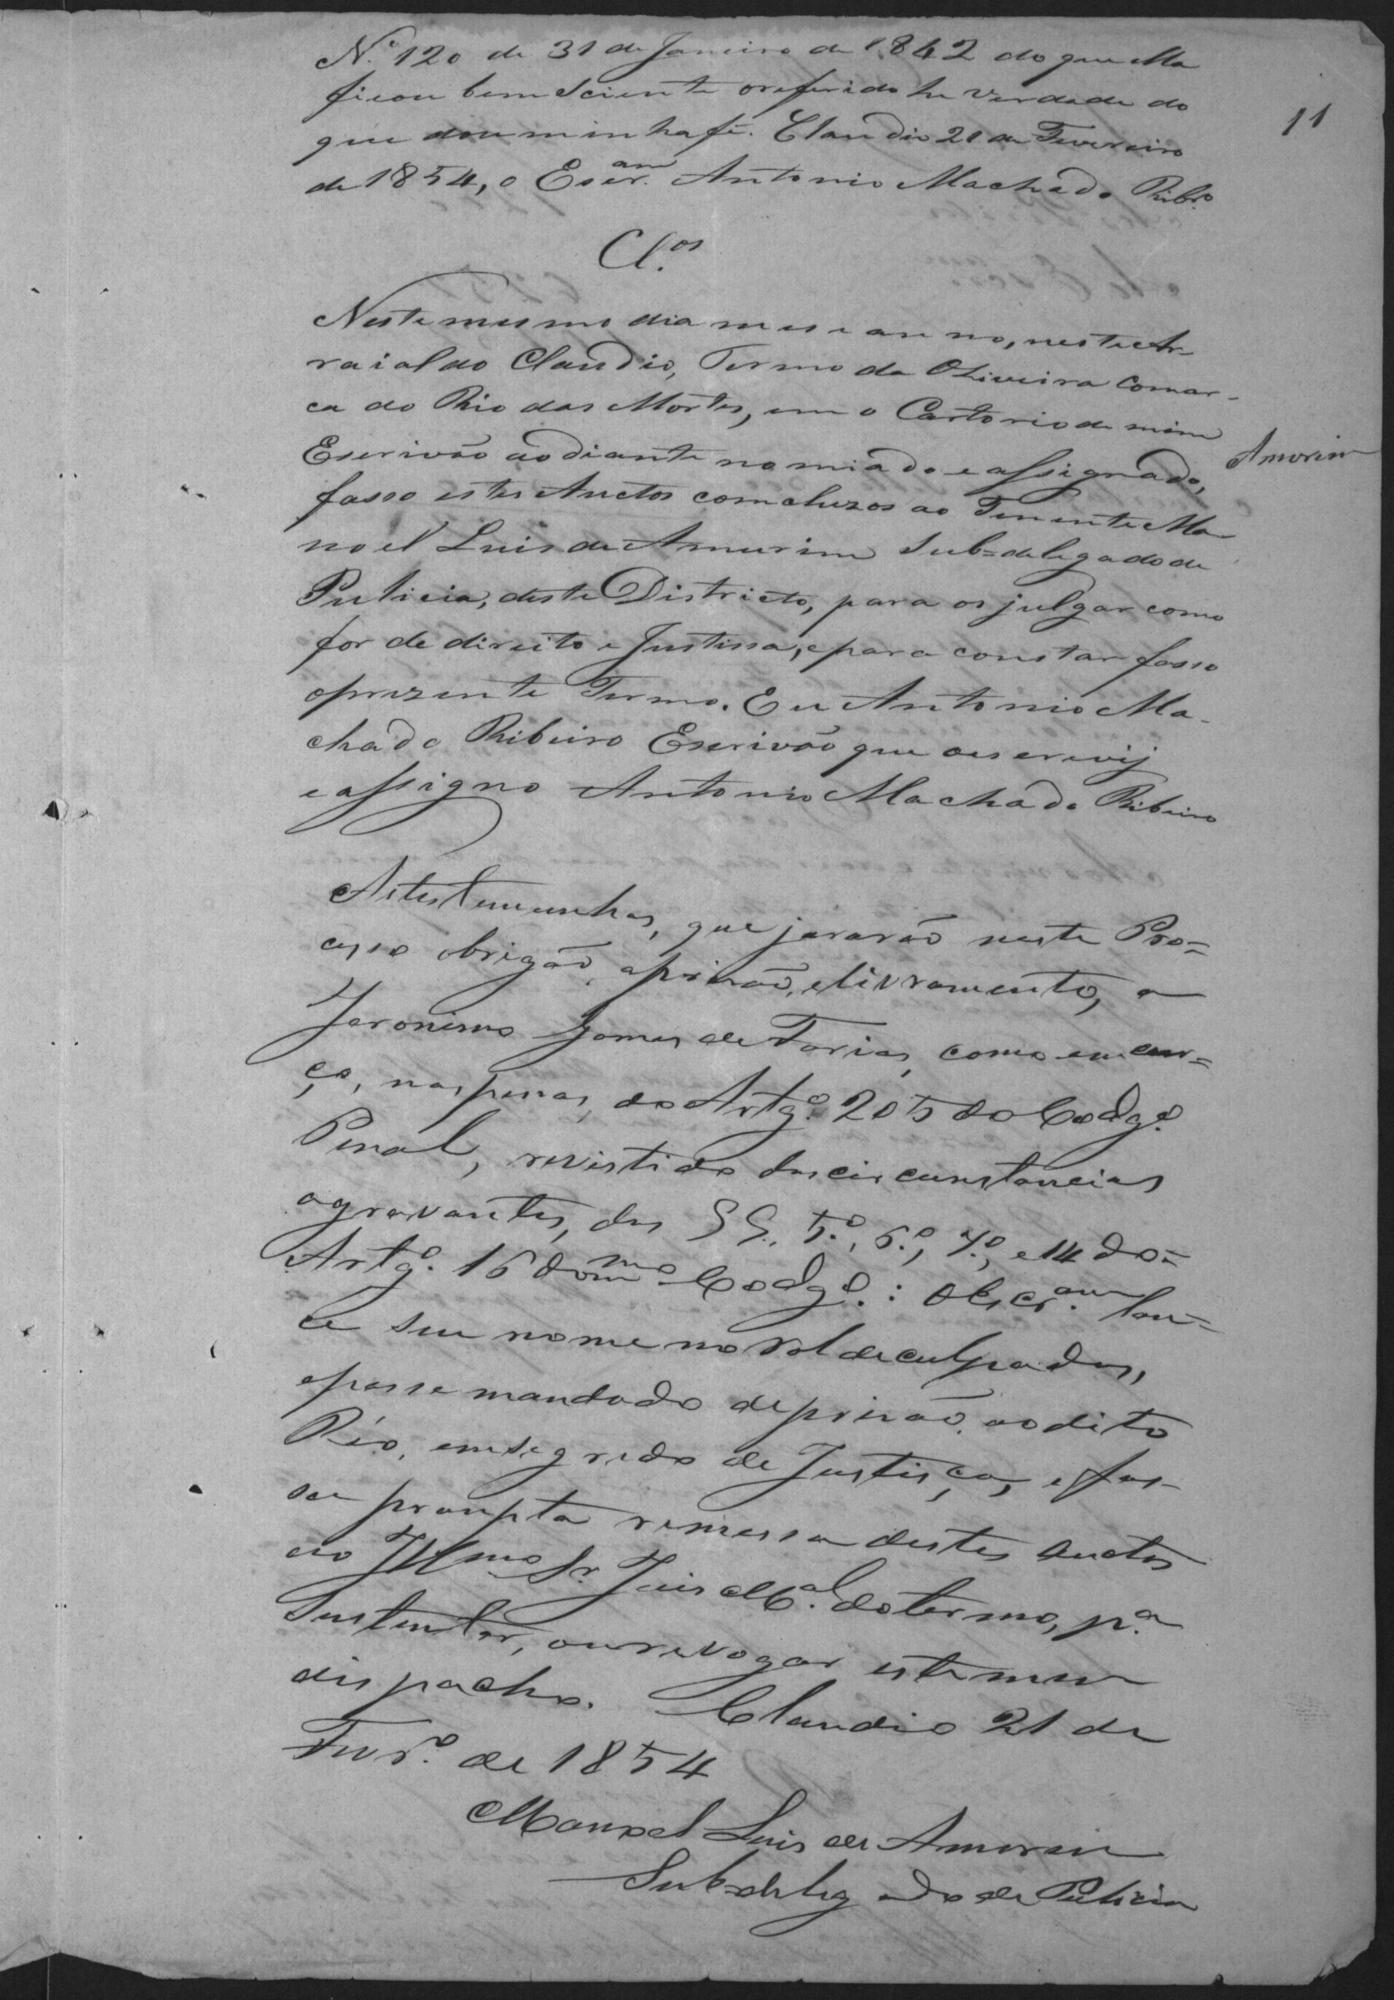 11
N.º 120 de 31 de Janeiro de 1842 do que Ma
ficou bem Sciente oreferido he verdade do
que dou minha fé. Claudio 21 de Fevereiro
de 1854, o Escr.am Antonio Machado Ribr.º
Cl.os
Neste mesmo dia mes e anno, neste Ar-
raial do Claudio, Termo da Oliveira Comar-
ca do Rio das Mortes, em o Cartorio de mim
Escrivão aodiante nomiado e assignado,
Amorim
fasso estes Auctos comcluzos ao Tenente Ma-
noel Luis de Amurim Sub=delegado de
Pulicia, deste Districto, para os julgar como
for de direito e Justissa, e para constar fasso
oprezente Termo. Eu Antonio Ma-
chado Ribeiro Escrivão que oescrevij
e assigno Antonio Machado Ribeiro
As testemunhas, que jararão neste Pro=
cesso obrigão, aprizão, e livramento, a
Jeronimo Gomes de Farias, como em cur=
ço, nas penas, do Artg.º 205 do Codg.º
Penal, revistido das circunstancias
agravantes, dos §§., 5.º, 6.º, 7.º, e 14 do=
Artg.º 16 do m.mo Codg.º: O Escr.am lan=
ce seu nome no Rol de culpados,
epasse mandado de prizão, ao dito
Réo, em segredo de Justiça, e fas-
sa prompta remessa destes Auctos
ao Ill.mo Sr. Juis M.al do termo, p.a
Sustentar, ou revogar este meu
dispacho. Claudio 21 de
Fevr.º de 1854
Manoel Luis de Amorim
Subdelegado de Pulicia